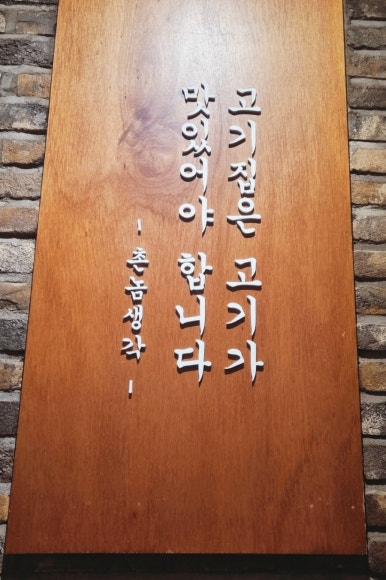 고기집은 고기가
맛있어야 합니다
- 촌놈생각 -